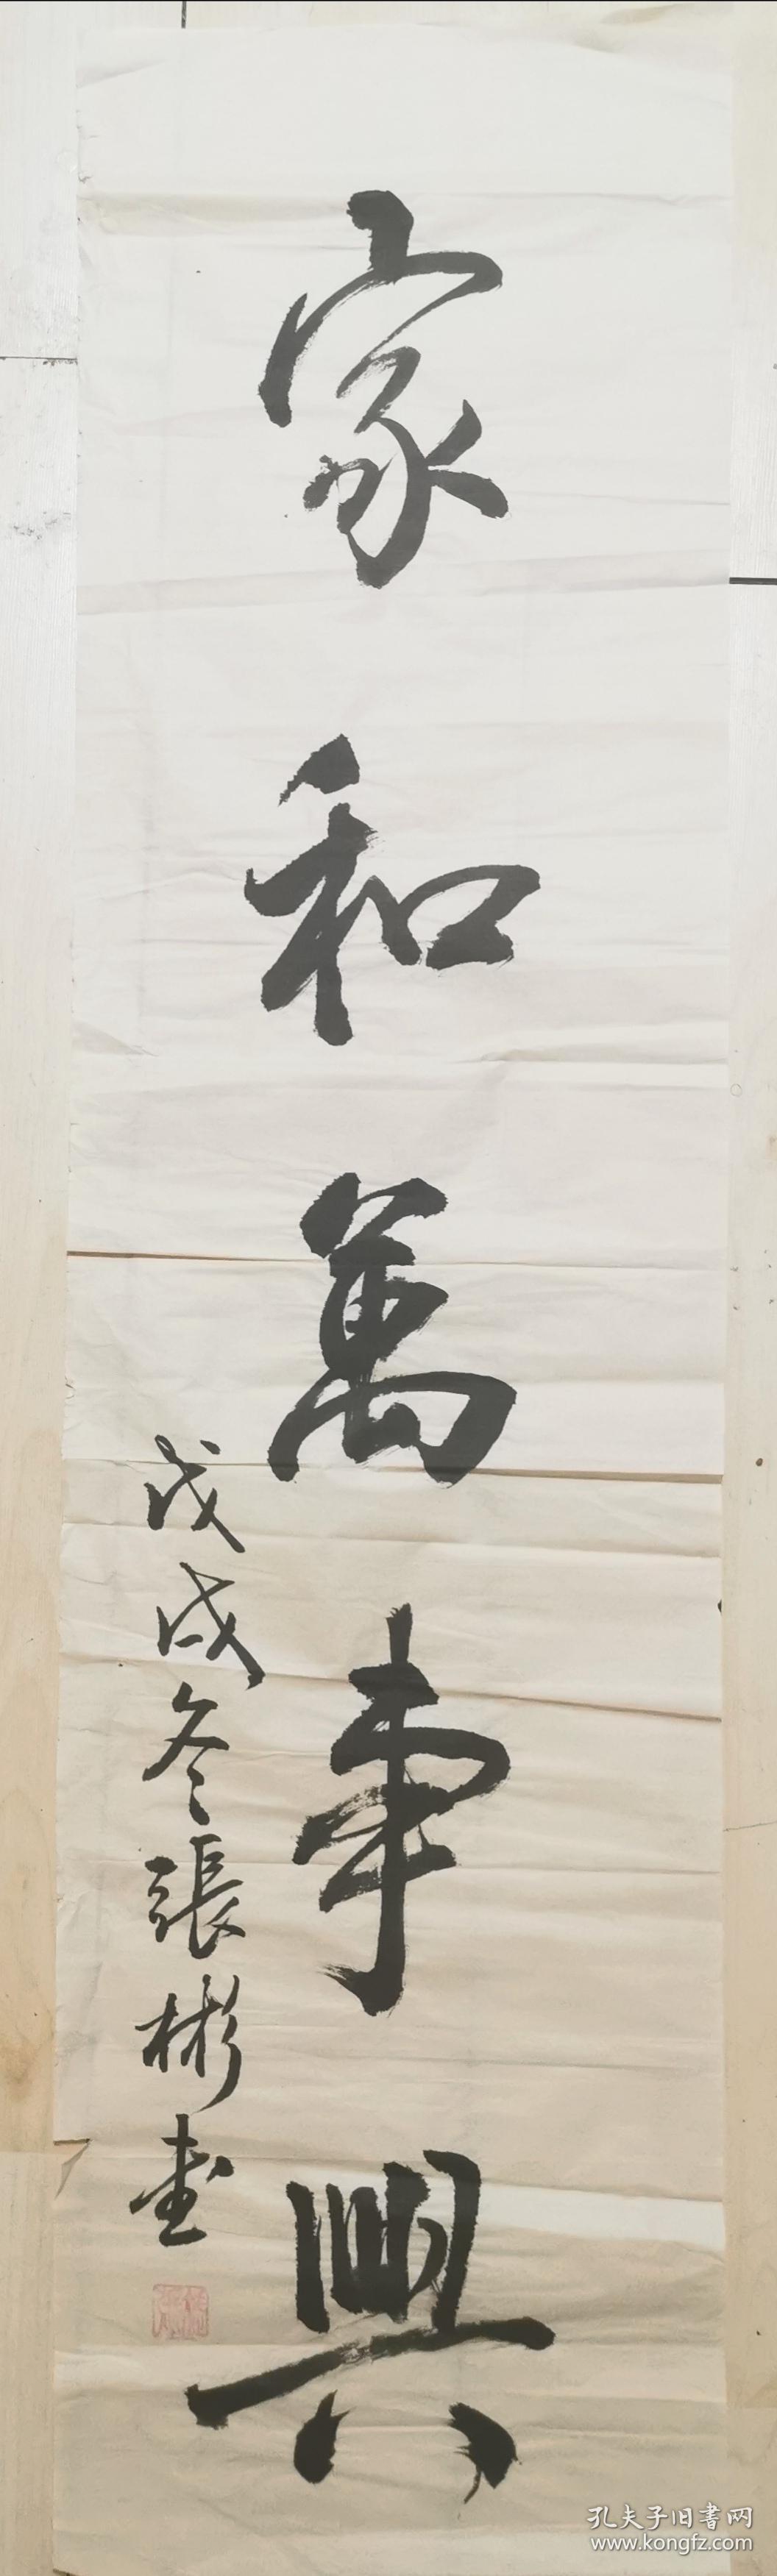 家和萬事興
戊戌冬張彬書
孔夫子旧書网
www.kongfz.com